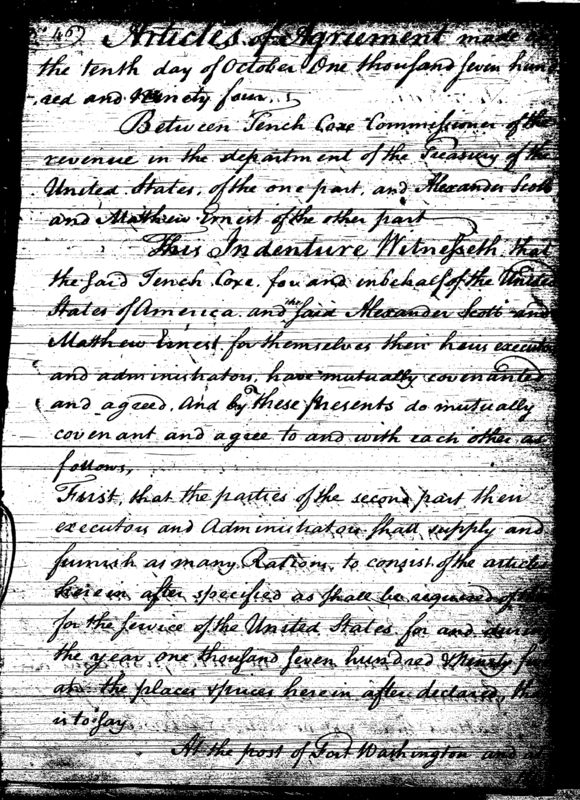 46) Articles of Agreement made
the tenth day of October One thousand Seven hun
red and Ninety four,
Between Tench Coxe Commissioner of the
revenue in the department of the Treasury of the
United States, of the one part, and Alexander Scott
and Matthew Ernest of the other part
This Indenture Witnesseth, that
the said Tench Coxe, for and in behalf of the United
States of America, and the said Alexander Scott and
Matthew Ernest, for themselves their heirs executors
and administrators, have mutually covenanted
and agreed, And by These presents do mutually
covenant and agree to and with each other as
follows,
First, that the parties of the second part their
executors and Administrators shall supply and
furnish as many Rations, to consist of the articles
herein after specified as shall be required of
for the service of the United States for and during
the year one thousand Seven hundred & Ninety
at the places & prices herein after declared, that
is to say
At the post of Fort Washington and